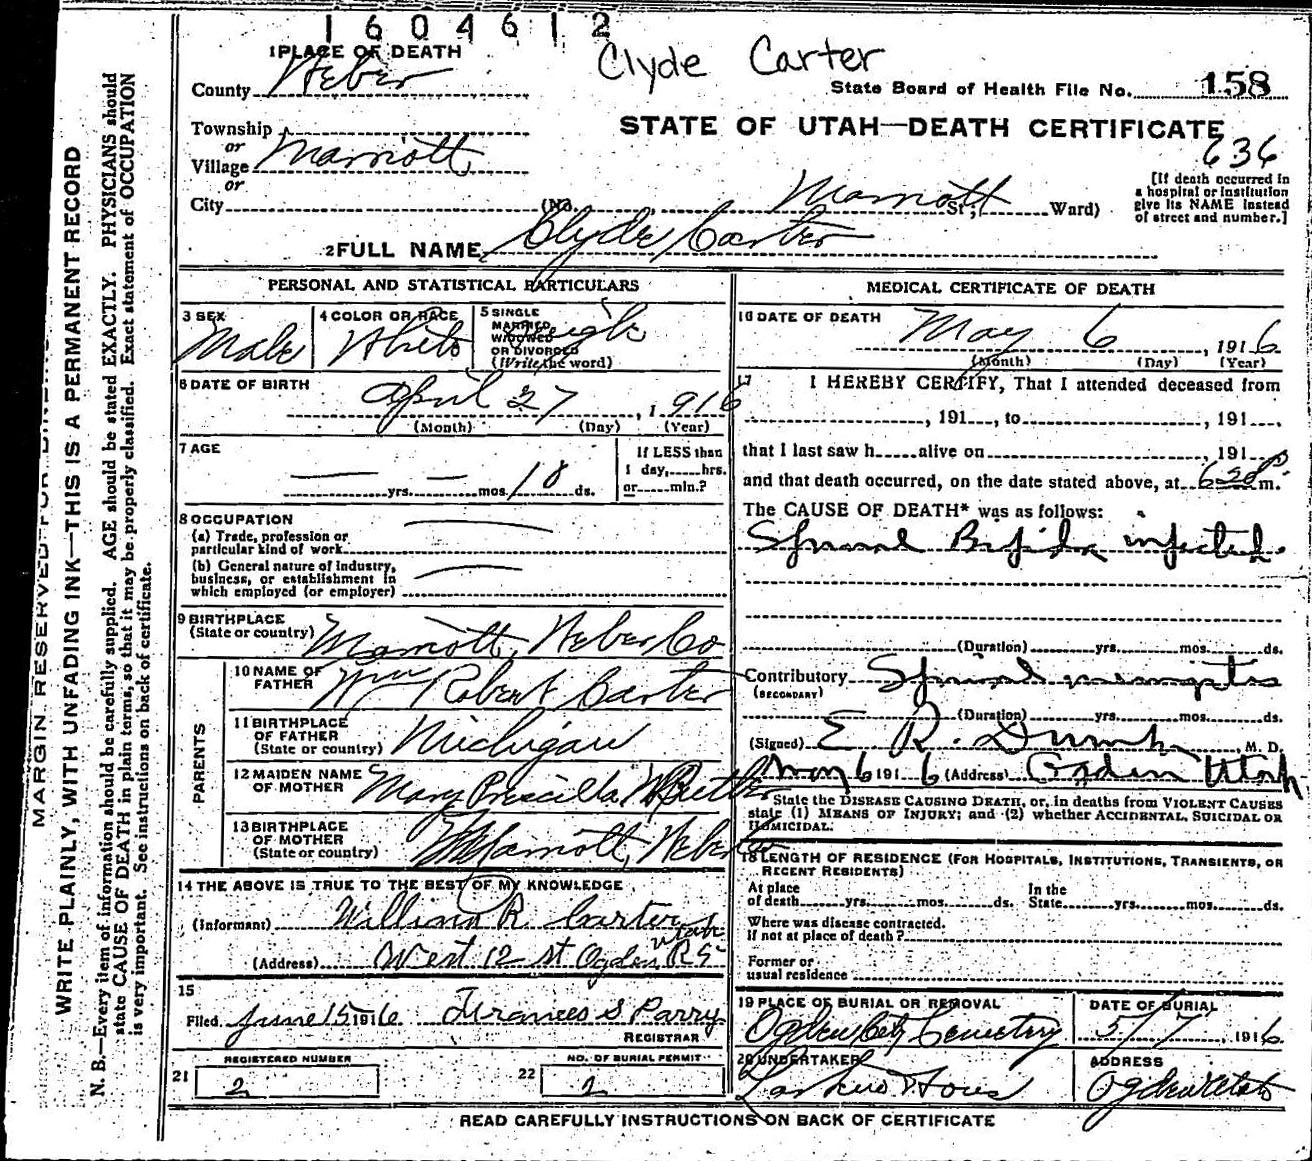 1604612
1 PLACE OF DEATH
Clyde Carter
County Weber
State Board of Health File No. 158
Township
STATE OF UTAH—DEATH CERTIFICATE
or
Village Marriott
636
or
[If death occurred in
a hospital or institution
give its NAME instead
of street and number.]
City (No. Marriott St; Ward)
2 FULL NAME Clyde Carter
PERSONAL AND STATISTICAL PARTICULARS
3 SEX
Male
4 COLOR OR RACE
White
5 SINGLE
MARRIED
WIDOWED
OR DIVORCED
(Write the word)
Single
6 DATE OF BIRTH
April 27, 1916
(Month) (Day) (Year)
7 AGE
— yrs. — mos. 10 ds.
If LESS than
1 day,.....hrs.
or.....min.?
8 OCCUPATION
(a) Trade, profession or
particular kind of work
(b) General nature of industry,
business, or establishment in
which employed (or employer)
9 BIRTHPLACE
(State or country) Marriott, Weber Co
PARENTS
10 NAME OF
FATHER Wm Robert Carter
11 BIRTHPLACE
OF FATHER
(State or country) Michigan
12 MAIDEN NAME
OF MOTHER Mary Priscilla Butler
13 BIRTHPLACE
OF MOTHER
(State or country) Marriott, Weber Co
14 THE ABOVE IS TRUE TO THE BEST OF MY KNOWLEDGE
(Informant) William R Carter
(Address) West 12 st Ogden Utah R5
15
Filed June 15 1916 Frances S Parry
REGISTRAR
REGISTERED NUMBER
21 2
NO. OF BURIAL PERMIT
22 2
MEDICAL CERTIFICATE OF DEATH
16 DATE OF DEATH
May 6, 1916
(Month) (Day) (Year)
17 I HEREBY CERTIFY, That I attended deceased from
, 191 , to , 191
that I last saw h alive on , 191
and that death occurred, on the date stated above, at 6 20 P m.
The CAUSE OF DEATH* was as follows:
Spinal Bifida infected.
(Duration) yrs. mos. ds.
Contributory Spinal meningitis
(SECONDARY)
(Duration) yrs. mos. ds.
(Signed) E. R. , M. D.
May 6 1916 (Address) Ogden Utah
State the DISEASE CAUSING DEATH, or, in deaths from VIOLENT CAUSES
state (1) MEANS OF INJURY; and (2) whether ACCIDENTAL, SUICIDAL OR
HOMICIDAL.
18 LENGTH OF RESIDENCE (FOR HOSPITALS, INSTITUTIONS, TRANSIENTS, OR
RECENT RESIDENTS)
At place
of death yrs. mos. ds.
In the
State yrs. mos. ds.
Where was disease contracted.
If not at place of death?
Former or
usual residence
19 PLACE OF BURIAL OR REMOVAL
Ogden City Cemetery
DATE OF BURIAL
5/7, 1916
20 UNDERTAKER
Larkin & Sons
ADDRESS
Ogden Utah
READ CAREFULLY INSTRUCTIONS ON BACK OF CERTIFICATE
MARGIN RESERVED FOR
WRITE PLAINLY, WITH UNFADING INK—THIS IS A PERMANENT RECORD
N. B.—Every item of information should be carefully supplied. AGE should be stated EXACTLY. PHYSICIANS should
state CAUSE OF DEATH in plain terms, so that it may be properly classified. Exact statement of OCCUPATION
is very important. See instructions on back of certificate.